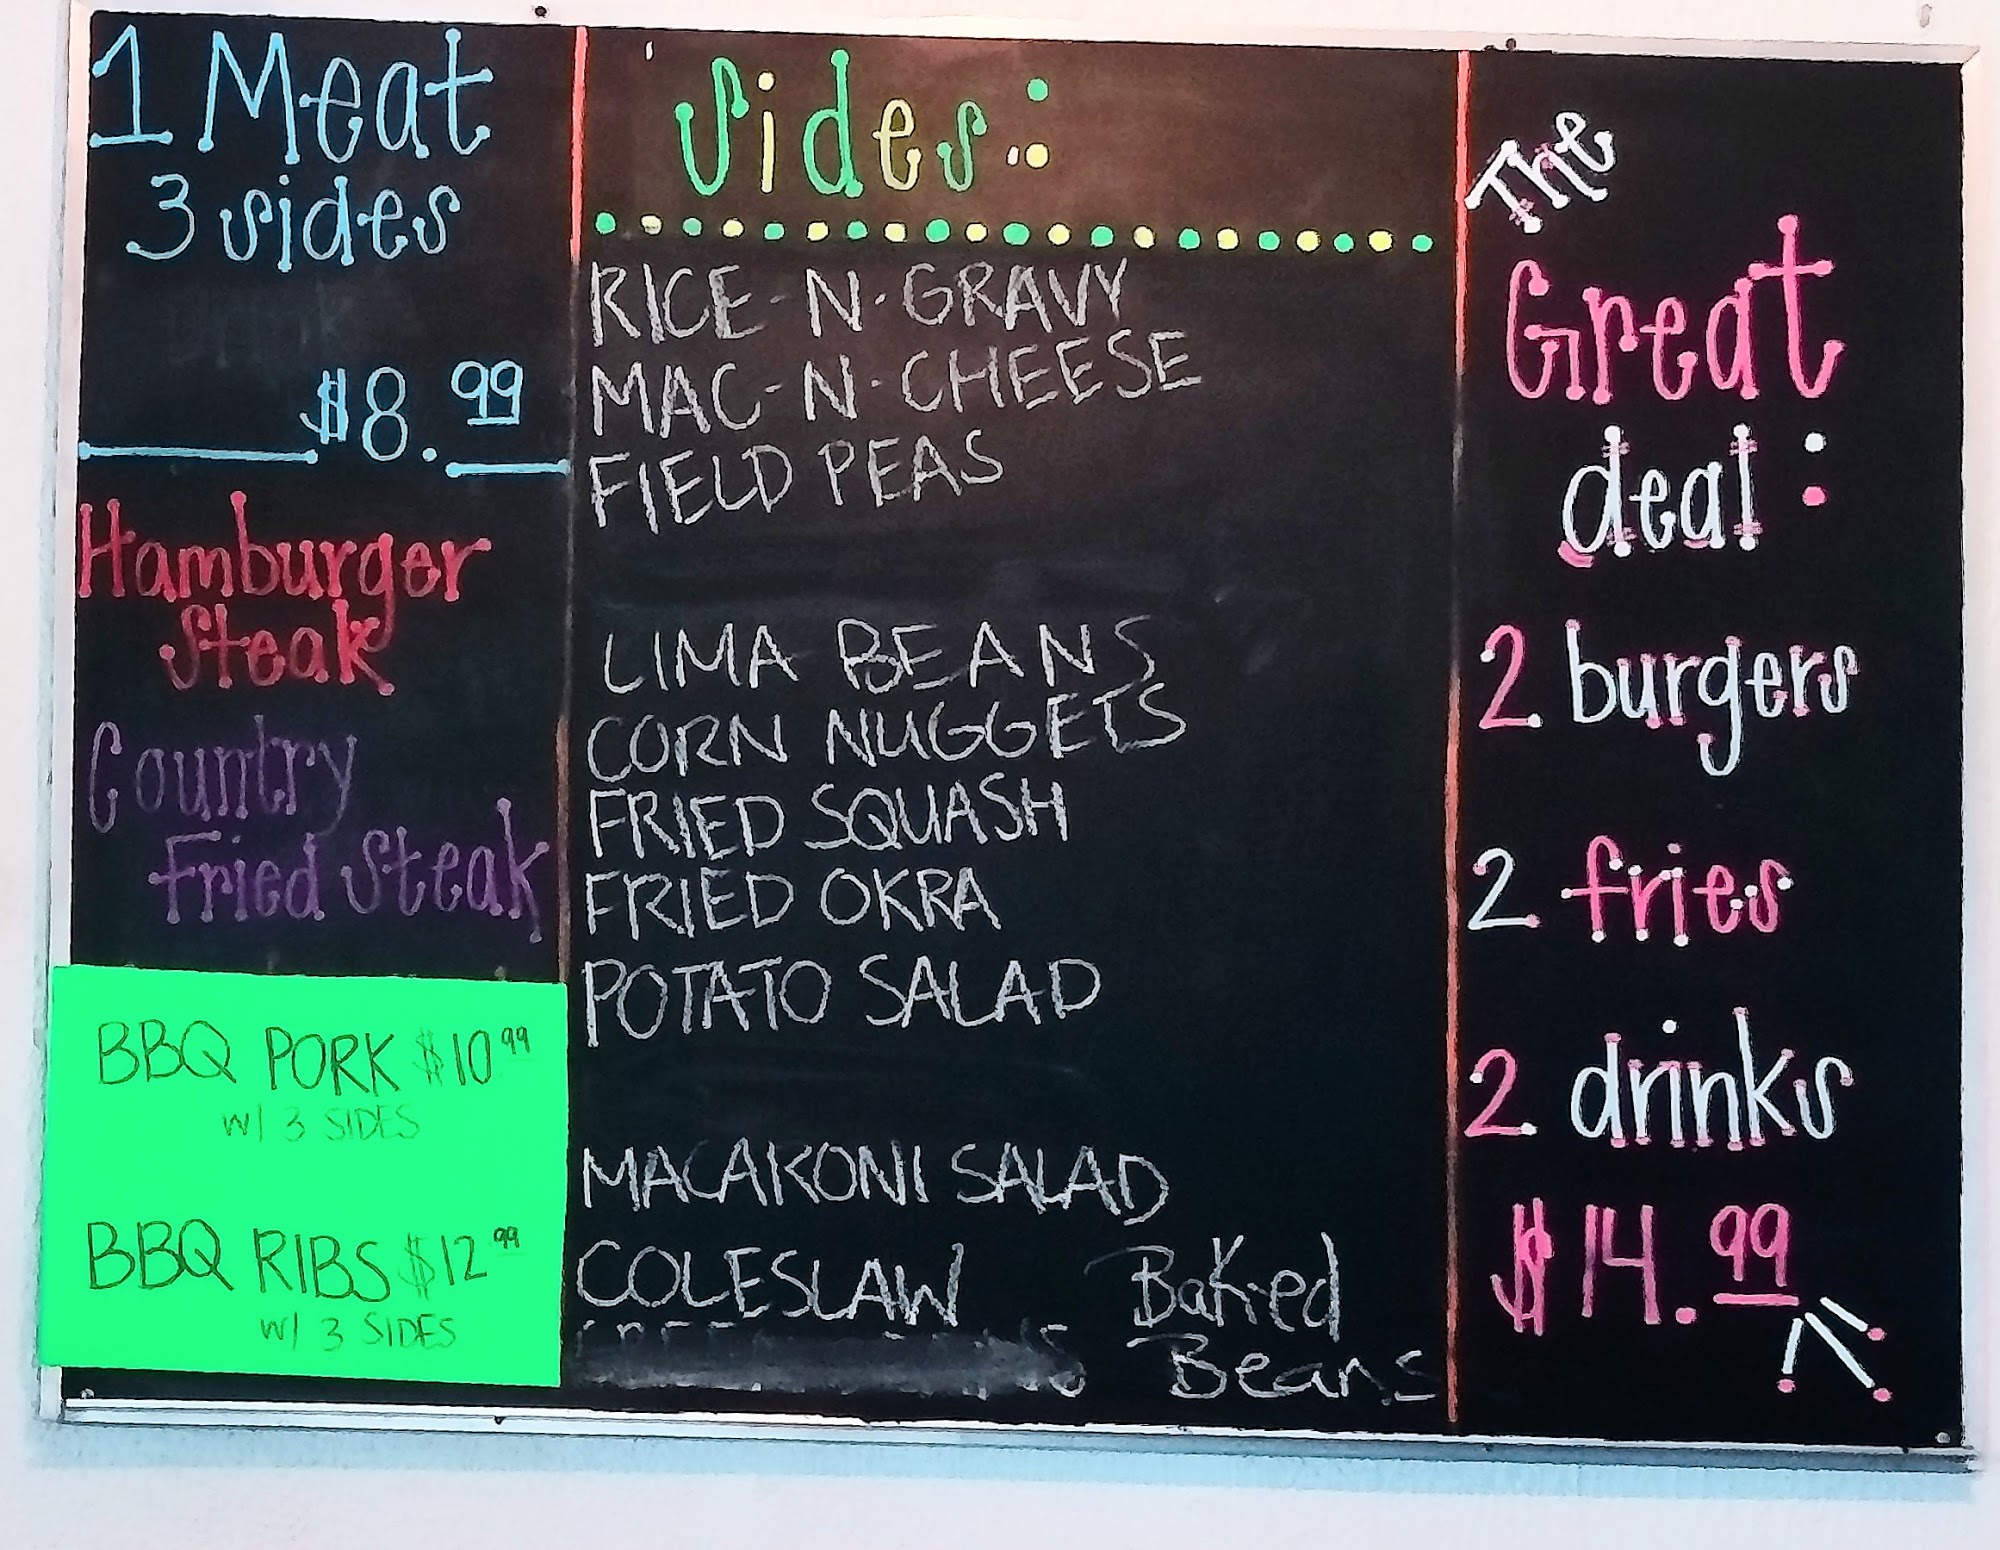 1 Meat
3 sides
Drink
$8.99
Hamburger
Steak
Country
Fried Steak
BBQ PORK $10 99
W/ 3 SIDES
BBQ RIBS $12 99
W/ 3 SIDES
Sides:
RICE-N-GRAVY
MAC-N-CHEESE
FIELD PEAS
LIMA BEANS
CORN NUGGETS
FRIED SQUASH
FRIED OKRA
POTATO SALAD
MACARONI SALAD
COLESLAW
Baked
Beans
The
Great
deal:
2 burgers
2 fries
2 drinks
$14.99